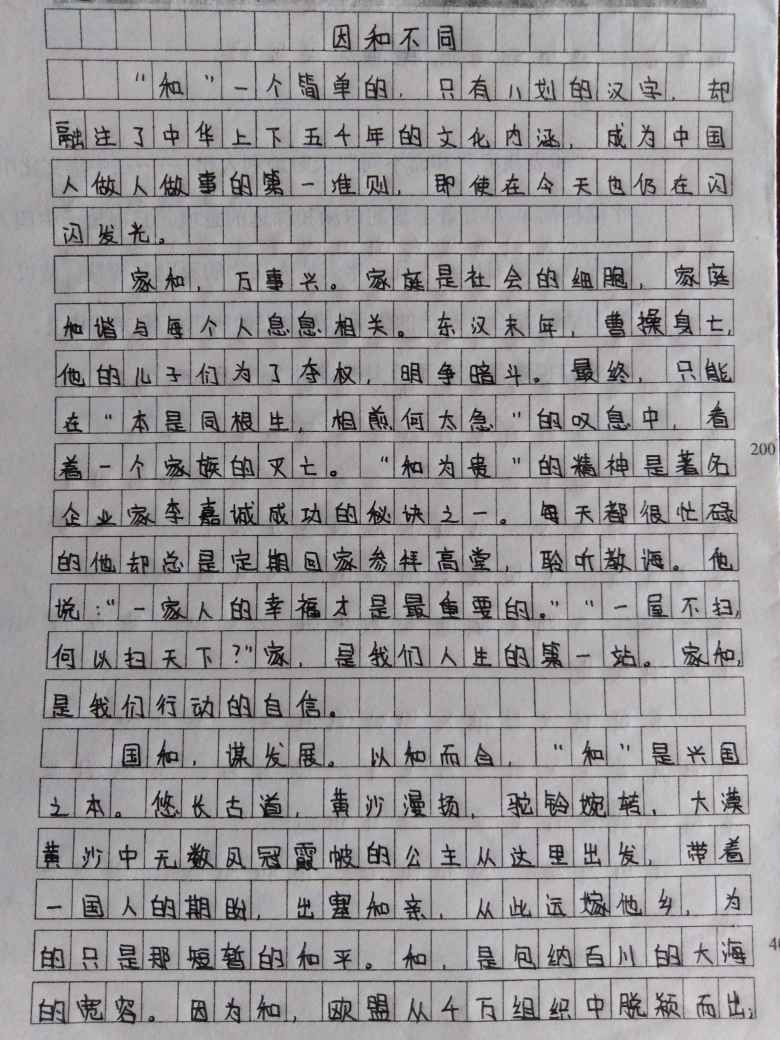 因和不同
“和”一个简单的,只有八划的汉字,却
融注了中华上下五千年的文化内涵,成为中国
人做人做事的第一准则,即使在今天也仍在闪
闪发光。
家和,万事兴。家庭是社会的细胞,家庭
和谐与每个人息息相关。东汉末年,曹操身亡,
他的儿子们为了夺权,明争暗斗。最终,只能
在“本是同根生,相煎何太急”的叹息中,看
着一个家族的灭亡。“和为贵”的精神是著名
200
企业家李嘉诚成功的秘诀之一。每天都很忙碌
的他却总是定期回家参拜高堂,聆听教诲。他
说:“一家人的幸福才是最重要的。”“一屋不扫,
何以扫天下?”家,是我们人生的第一站。家和,
是我们行动的自信。
国和,谋发展。以和而合,“和”是兴国
之本。悠长古道,黄沙漫扬,驼铃婉转,大漠
黄沙中无数凤冠霞帔的公主从这里出发,带着
一国人的期盼,出塞和亲,从此远嫁他乡,为
的只是那短暂的和平。和,是包纳百川的大海
的宽容。因为和,欧盟从千万组织中脱颖而出;